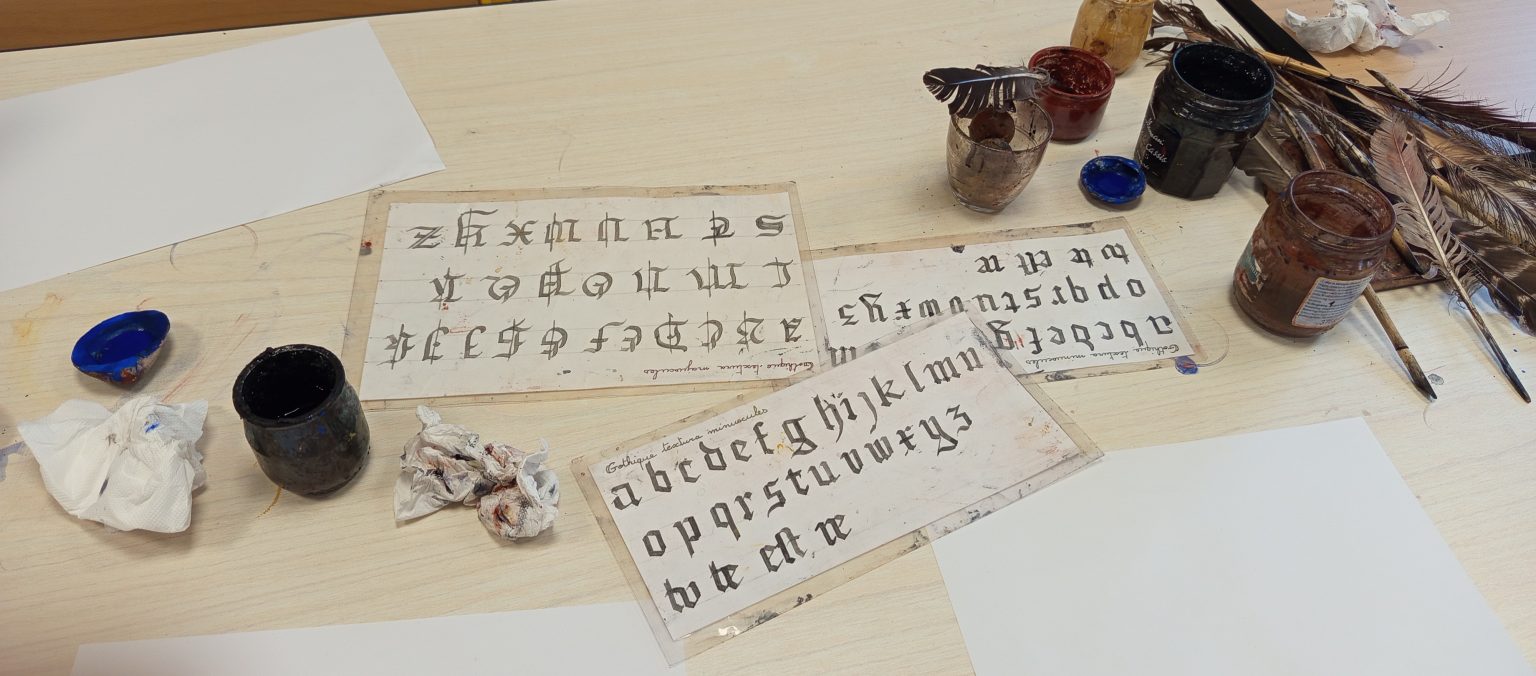 Gothique textura majuscules
A B C D E F G H I J K
L M N O P Q R
S T U V W X Y Z
Gothique textura minuscules
a b c d e f g
o p q r s t u v w x y z
tv te est æ
Gothique textura minuscules
a b c d e f g h i j k l m n
o p q r s t u v w x y z
tv te est æ
Cassis